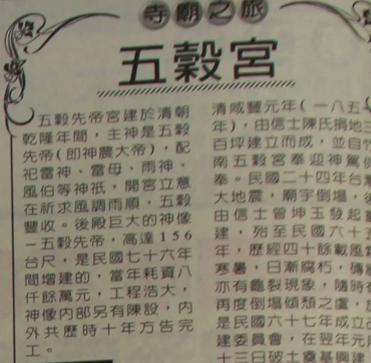 寺廟之旅
五穀宮
五穀先帝宮建於清朝
乾隆年間，主神是五穀
先帝(即神農大帝)，配
祀雷神、雷母、雨神、
風伯等神祇，開宮立意
在祈求風調雨順，五穀
豐收。後殿巨大的神像
－五穀先帝，高達156
台尺，是民國七十六年
間增建的，當年耗資八
仟餘萬元，工程浩大，
神像內部另有陳設，內
外共歷時十年方告完
工。
清咸豐元年(一八五
年)，由信士陳氏捐地三
百坪建立而成，並自竹
南五穀宮奉迎神駕
奉。民國二十四年台灣
大地震，廟宇倒塌，
由信士曾坤玉發起
建，殆至民國六十五
年，歷經四十餘載風霜
寒暑，日漸腐朽，磚
亦有龜裂現象，隨時有
再度倒塌傾頹之虞，
是民國六十七年成立
建委員會，在翌年元月
十三日破土奠基興建